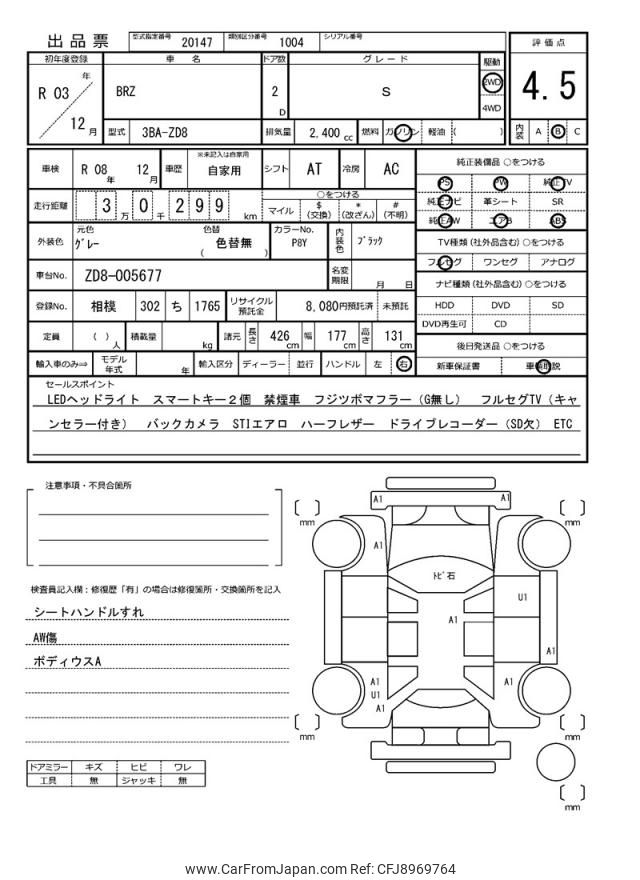 出品票 型式指定番号 20147 類別区分番号 1004 シリアル番号
初年度登録 車名 ドア数 グレード 駆動 評価点
R 03 年 12 月 BRZ 2 D S 2WD 4WD 4.5
型式 3BA-ZD8 排気量 2,400 cc 燃料 ガソリン 軽油 ( ) 内装 A B C
車検 R 08 年 12 月 車歴 ※未記入は自家用 自家用 シフト AT 冷房 AC
走行距離 3 万 0 千 2 9 9 km ○をつける
マイル $ (交換) * (改ざん) # (不明)
外装色 元色 グレー 色替 色替無 ( ) カラーNo. P8Y 内装色 ブラック
車台No. ZD8-005677 名変期限 月 日
登録No. 相模 302 ち 1765 リサイクル預託金 8,080円預託済 未預託
定員 ( ) 人 積載量 kg 諸元 長さ 426 cm 幅 177 cm 高さ 131 cm
輸入車のみ⇒ モデル年式 年 輸入区分 ディーラー 並行 ハンドル 左 右
純正装備品 ○をつける
PS PW 純正TV
純正ナビ 革シート SR
純正AW エアB ABS
TV種類 (社外品含む) ○をつける
フルセグ ワンセグ アナログ
ナビ種類 (社外品含む) ○をつける
HDD DVD SD
DVD再生可 CD
後日発送品 ○をつける
新車保証書 車輌取説
セールスポイント
LEDヘッドライト スマートキー2個 禁煙車 フジツボマフラー(G無し) フルセグTV(キャ
ンセラー付き) バックカメラ STIエアロ ハーフレザー ドライブレコーダー(SD欠) ETC
注意事項・不具合箇所
検査員記入欄：修復歴「有」の場合は修復箇所・交換箇所を記入
シートハンドルすれ
AW傷
ボディウスA
ドアミラー キズ ヒビ ワレ
工具 無 ジャッキ 無
A1 A1
mm mm
A1
トビ石
U1
A1
A1
A1 U1 A1
A1
mm mm
mm
www.CarFromJapan.com Ref: CFJ8969764